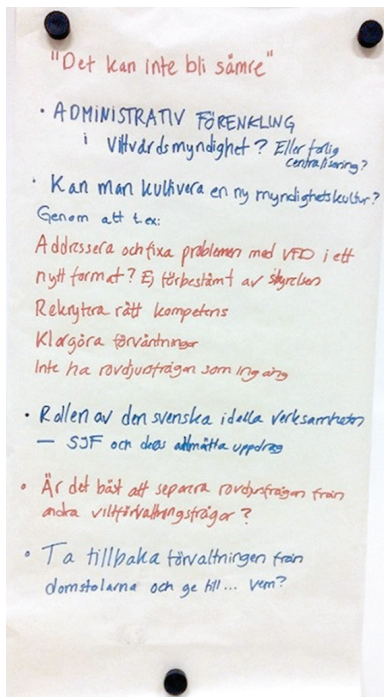 "Det kan inte bli sämre"
• ADMINISTRATIV FÖRENKLING
i Viltvårdsmyndighet? Eller farlig
centralisering?
• Kan man kultivera en ny myndighetskultur?
Genom att t.ex:
Addressera och fixa problemen med VFD i ett
nytt format? Ej förbestämt av styrelsen
Rekrytera rätt kompetens
Klargöra förväntningar
Inte ha rovdjursfrågan som ingång
• Rollen av den svenska ideella verksamheten
– SJF och deras allmätta uppdrag
• Är det bäst att separera rovdjursfrågan från
andra viltförvaltningsfrågor?
• Ta tillbaka förvaltningen från
domstolarna och ge till... vem?